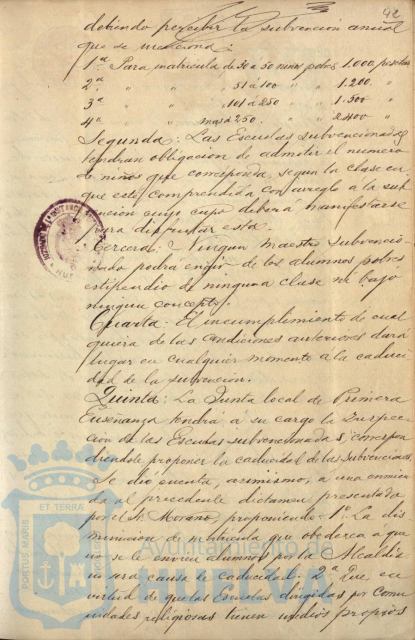 42
debiendo percibir la subvención anual
que se menciona:
1ª Para matricula de 30 á 50 niños pobres 1.000 pesetas
2ª " " 51 á 100 " " 1.200 "
3ª " " 101 á 250 " " 1.500 "
4ª " " mas de 250. " " 2400 "
Segunda: Las Escuelas subvencionadas
tendran obligacion de admitir el numero
de niños que corresponda, segun la clase en
que esté comprendida con arreglo a la sub
vencion cuyo cupo deberá manifestarse
para disfrutar esta.
Tercera: Ningun maestro subvencio-
nado podrá exigir de los alumnos pobres
estipendio de ninguna clase ni bajo
ningun concepto.
Cuarta: El incumplimiento de cual
quiera de las condiciones anteriores dará
lugar en cualquier momento a la caduci
dad de la subvencion.
Quinta: La Junta local de Primera
Enseñanza tendrá á su cargo la Inspec-
cion de las Escuelas subvencionadas, correspon
diendole proponer la caducidad de las Subvenciones.
Se dió cuenta, asimismo, a una enmien
da al precedente dictamen presentada
por el Sr. Morano, proponiendo: 1º La dis
minucion de matricula que obedezca á que
no se le envien alumnos por la Alcaldia
no sera causa de caducidad. 2º Que en
virtud de que las Escuelas dirigidas por comu
nidades religiosas tienen medios propios
PORTUS MARIS ET TERRA
Ayuntamiento de